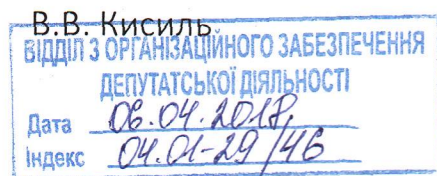 В.В. Кисиль
ВІДДІЛ З ОРГАНІЗАЦІЙНОГО ЗАБЕЗПЕЧЕННЯ
ДЕПУТАТСЬКОЇ ДІЯЛЬНОСТІ
Дата 06.04.2018р
Індекс 04.01-29/46